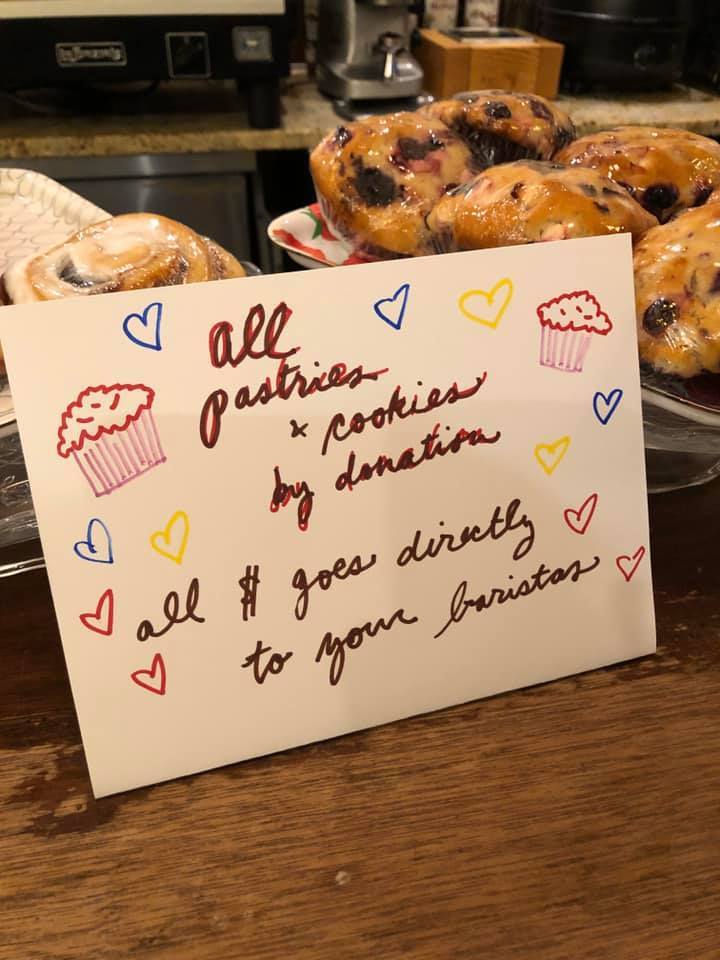 all
pastries
& cookies
by donation
all $ goes directly
to your baristas